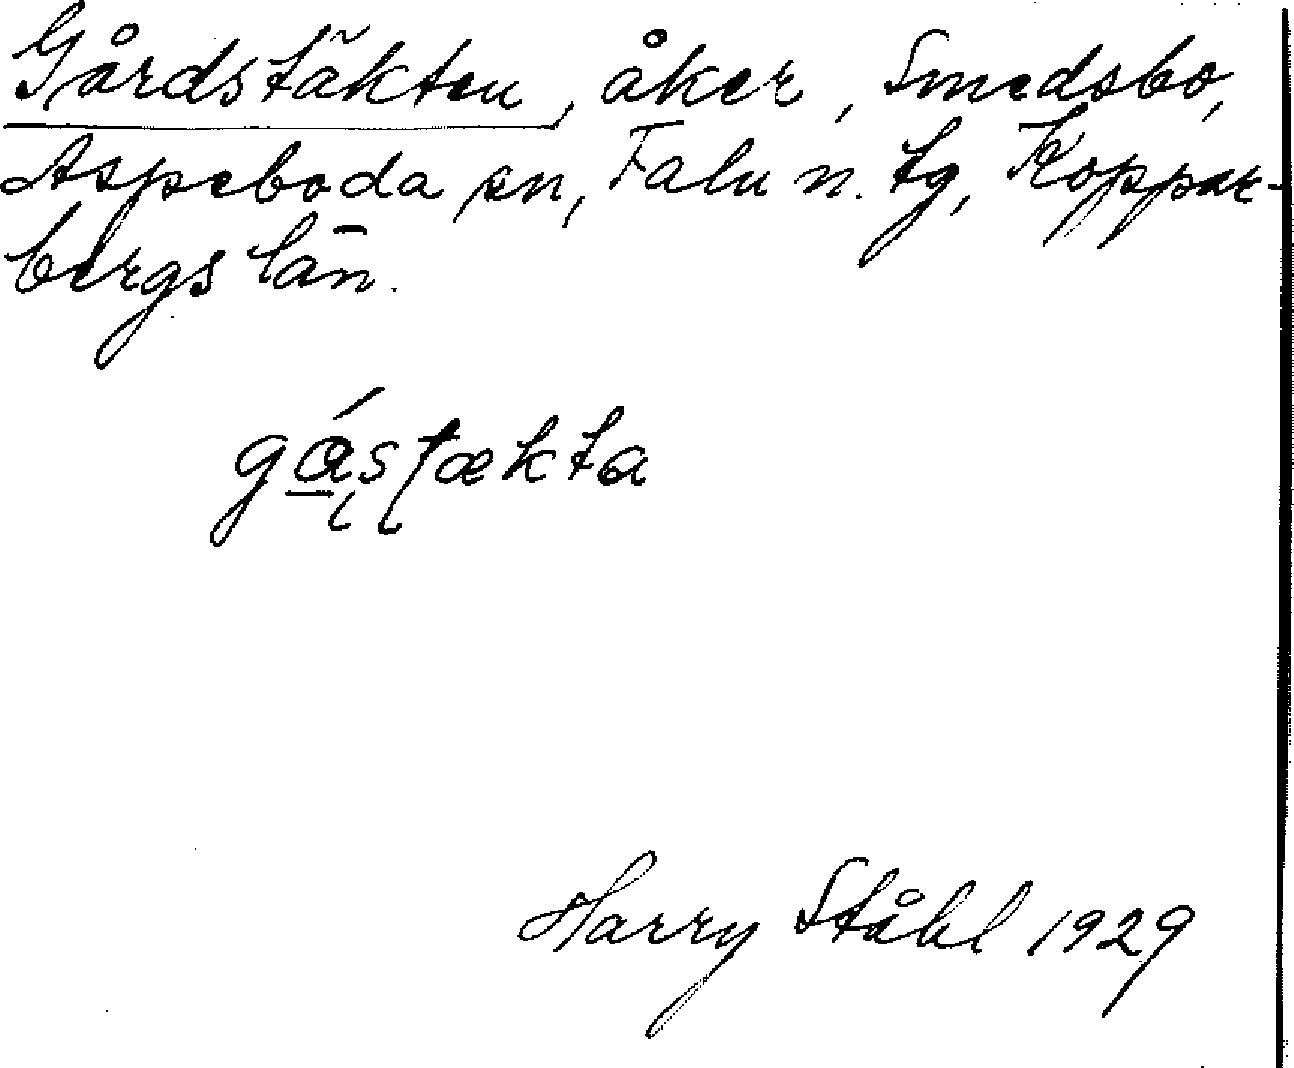 Gårdstäkten, åker, Smedsbo,
Aspeboda sn, Falu n. tg, Koppar-
bergs län.
gåsʃtækta
Harry Ståhl 1929